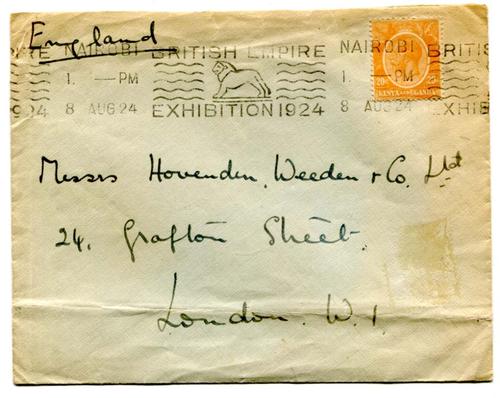 England
IRE NAIROBI BRITISH EMPIRE NAIROBI BRITIS
1. — PM 1. — PM
1924 8 AUG 24 EXHIBITION 1924 8 AUG 24 EXHIB
20c 20c
KENYA AND UGANDA
Messrs Hovenden, Weeden & Co. Ltd
24, Grafton Street.
London. W.1.